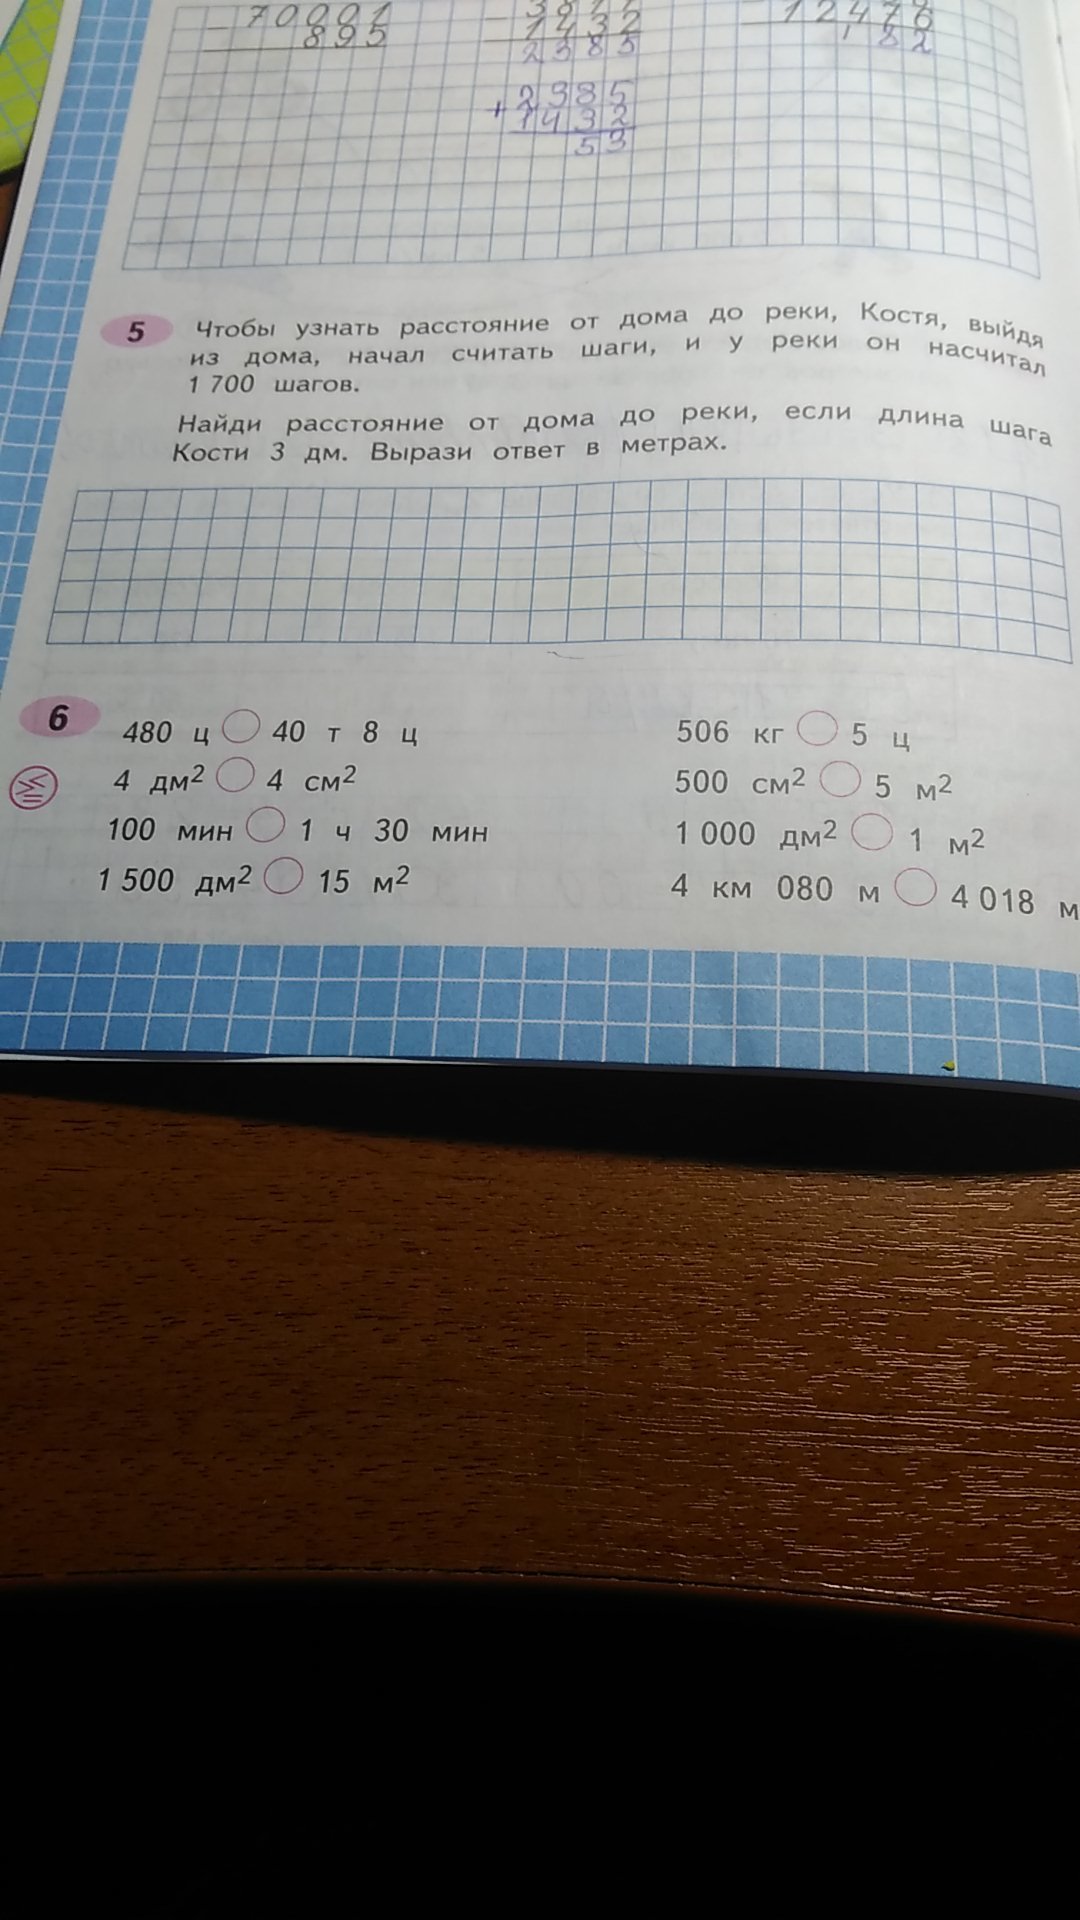 - 70001
895
- 1432
2385
2385
+ 1432
53
- 12476
182
5 Чтобы узнать расстояние от дома до реки, Костя, выйдя
из дома, начал считать шаги, и у реки он насчитал
1 700 шагов.
Найди расстояние от дома до реки, если длина шага
Кости 3 дм. Вырази ответ в метрах.
6 480 ц ○ 40 т 8 ц 506 кг ○ 5 ц
4 дм² ○ 4 см² 500 см² ○ 5 м²
100 мин ○ 1 ч 30 мин 1 000 дм² ○ 1 м²
1 500 дм² ○ 15 м² 4 км 080 м ○ 4 018 м